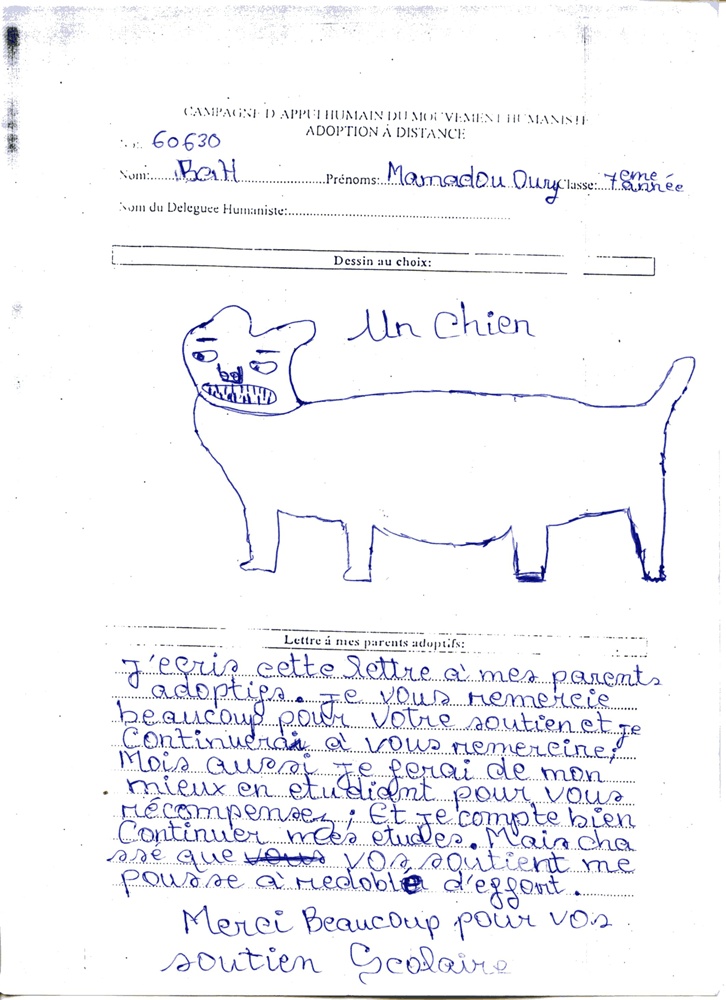 CAMPAGNE D'APPUI HUMAIN DU MOUVEMENT HUMANISTE
ADOPTION À DISTANCE
60630
Nom: BaH Prénoms: Mamadou Oury Classe: 7eme année
Nom du Deleguee Humaniste:
Dessin au choix:
Un Chien
Lettre á mes parents adoptifs:
J'ecris cette lettre à mes parents
adoptifs. Je vous remercie
beaucoup pour votre soutien et je
Continuerai à vous remercine;
Mois aussi Je ferai de mon
mieux en etudiant pour vous
récompenser; Et Je compte bien
Continuer mes etudes. Mais cha
ssé que vous vos soutient me
pousse à redoble d'effort.
Merci Beaucoup pour vos
soutien Scolaire